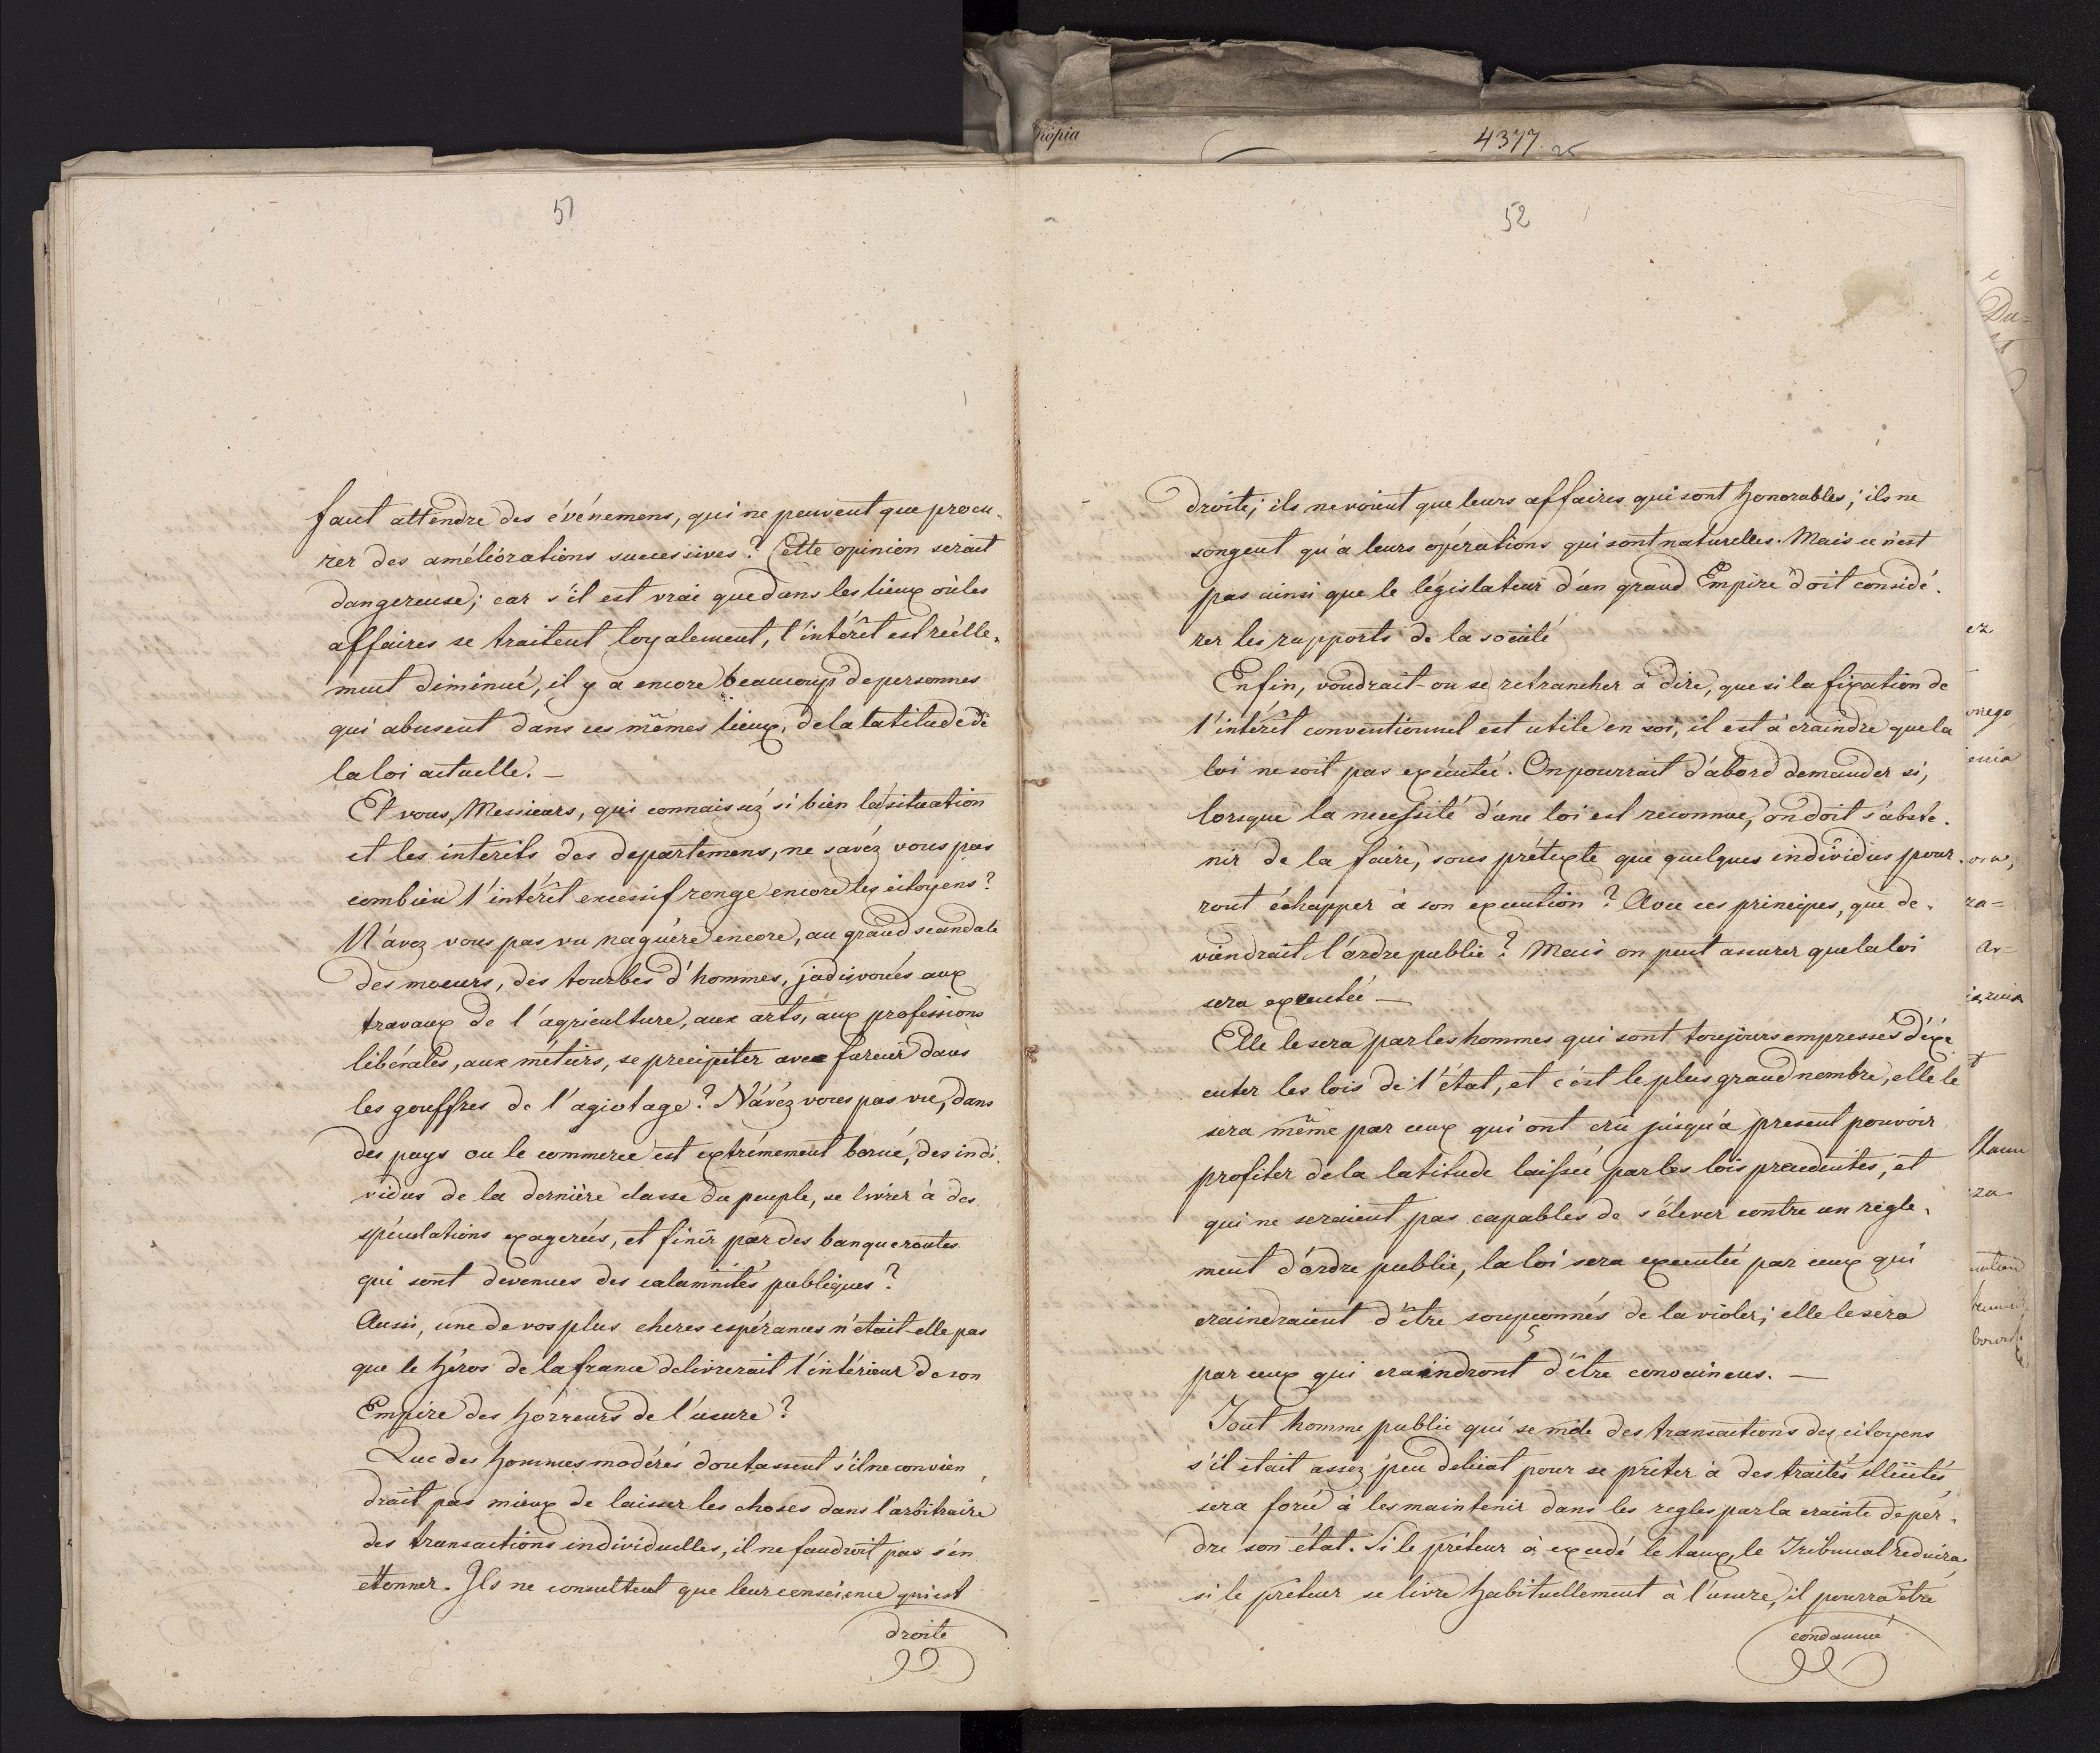 51
faut attendre des événemens, qui ne peuvent que procu-
rer des améliorations successives? Cette opinion serait
dangereuse; car s'il est vrai que dans les lieux où les
affaires se traitent loyalement, l'intérêt est réelle-
ment diminué, il y a encore beaucoup de personnes
qui abusent dans ces mêmes lieux, de la latitude de
la loi actuelle. —
Et vous, Messieurs, qui connaissez si bien la situation
et les interêts des departemens, ne savéz vous pas
combien l'intérêt excessif ronge encore les citoyens?
N'avez vous pas vu naguère encore, au grand scandale
des moeurs, des tourbes d'hommes, jadis voués aux
travaux de l'agriculture, aux arts, aux professions
libérales, aux métiers, se precipiter avec fureur dans
les gouffres de l'agiotage? N'avéz vous pas vu, dans
des pays ou le commerce est extrémement borné, des indi-
vidus de la dernière classe du peuple, se livrer à des
spéculations exagerées, et finir par des banqueroutes
qui sont devenues des calamités publiques?
Aussi, une de vos plus cheres espérances n'etait-elle pas
que le héros de la france delivrerait l'intérieur de son
Empire des horreurs de l'usure?
Que des hommes modérés doutassent s'il ne convien
drait pas mieux de laisser les choses dans l'arbitraire
des transactions individuelles, il ne faudroit pas s'en
ettonner. Ils ne consultent que leur conscience qui est
droite
kopia
4377.
52
droite; ils ne voient que leurs affaires qui sont honorables; ils ne
songent qu'à leurs opérations qui sont naturelles. Mais ce n'est
pas ainsi que le législateur d'un grand Empire doit considé-
rer les rapports de la société
Enfin, voudrait-on se retrancher à dire, que si la fixation de
l'intérêt conventionnel est utile en soi, il est à craindre que la
loi ne soit pas exécutée. On pourrait d'abord demander si,
lorsque la necessité d'une loi est reconnue, on doit s'abste-
nir de la faire, sous prétexte que quelques individus pour-
ront échapper à son execution? Avec ces principes, que de-
viendrait l'ordre public? Mais on peut assurer que la loi
sera executée —
Elle le sera par les hommes qui sont toujours empressés d'éxé
cuter les lois de l'état, et c'est le plus grand nombre, elle le
sera même par ceux qui ont crû jusqu'à present pouvoir
profiter de la latitude laissée par les lois precedentes, et
qui ne seraient pas capables de s'élever contre un regle-
ment d'ordre public, la loi sera executée par ceux qui
craindraient d'être soupçonnés de la violer; elle le sera
par ceux qui craindront d'être convaincus. —
Tout homme public qui se mêle des transactions des citoyens
s'il était assez peu delicat pour se prêter à des traités illicites
sera forcé à les maintenir dans les regles par la crainte de per-
dre son état. Si le prêteur à excedé le taux, le Tribunal reduira
si le prêteur se livre habituellement à l'usure, il pourra être
condamné